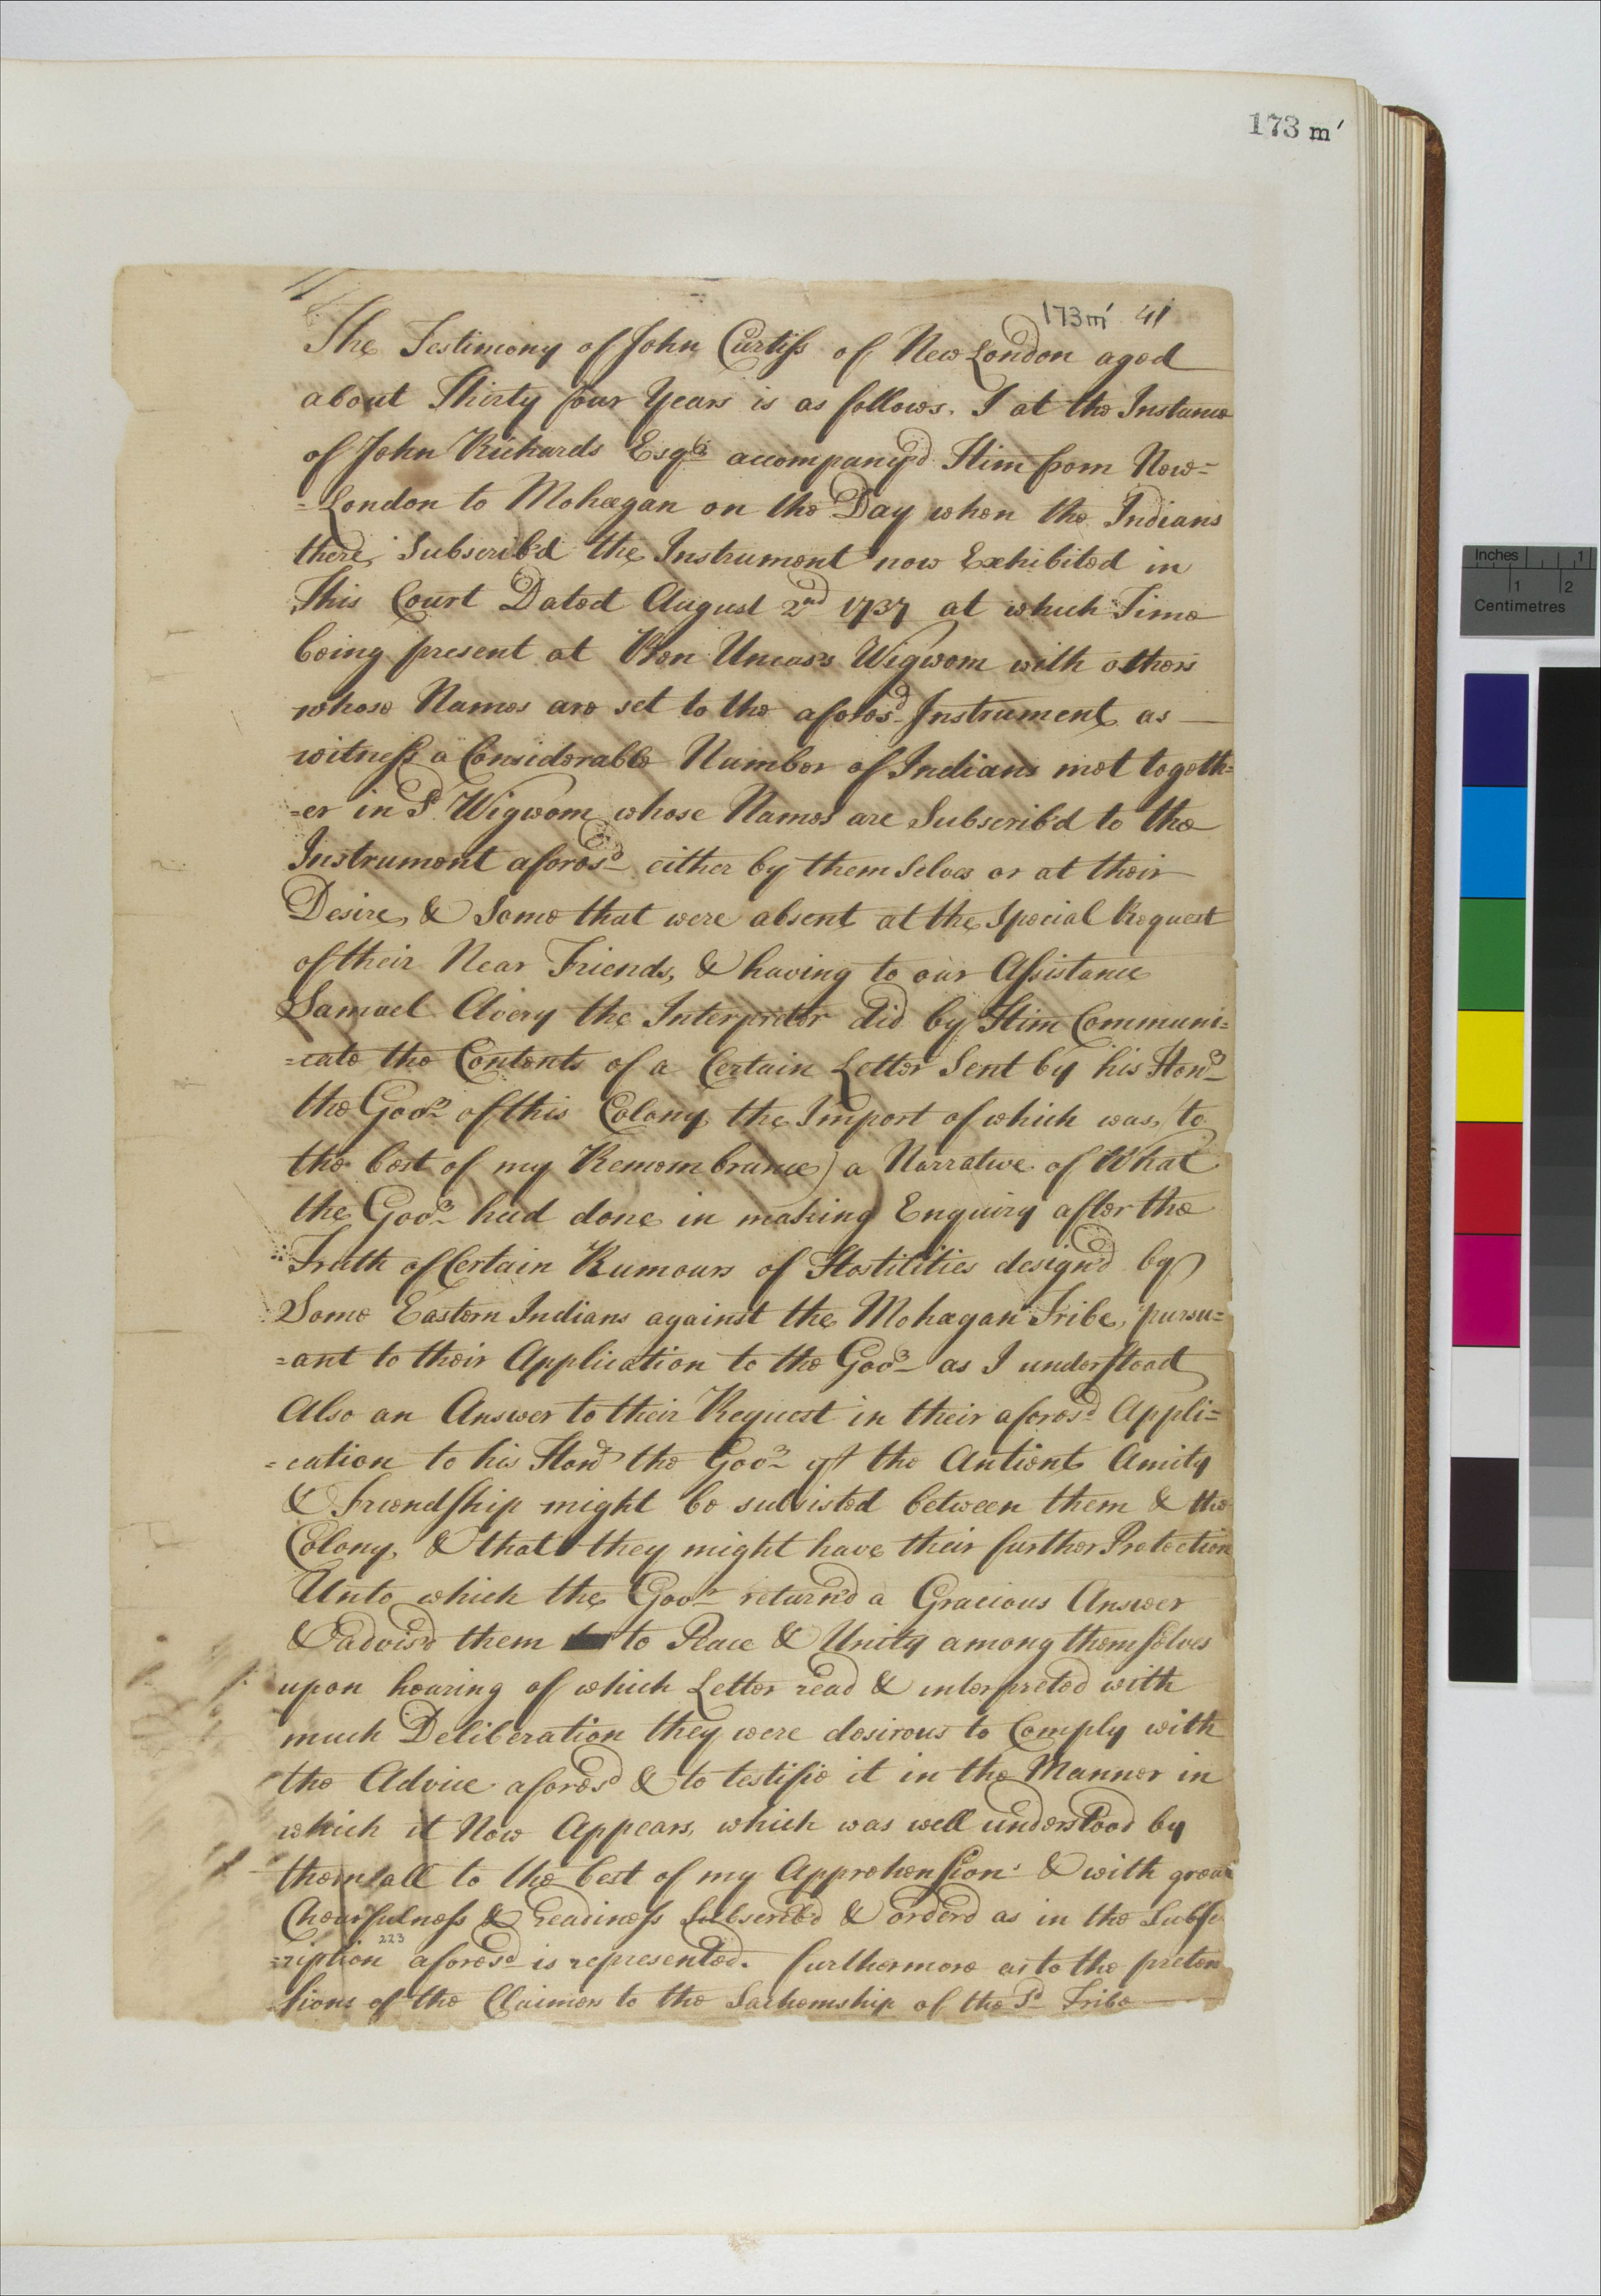 173 m'
173m' 41
The Testimony of John Curtiss of New London aged
about Thirty four Years is as follows. I at the Instance
of John Richards Esqr accompany'd Him from New=
=London to Mohegan on the Day when the Indians
there Subscrib'd the Instrument now Exhibited in
This Court Dated August 2nd 1737 at which Time
being present at Ben Uncas's Wigwom with others
whose Names are set to the afores.d Instrument as
witness a Considerable Number of Indians met togeth=
=er in S.d Wigwom whose Names are Subscrib'd to the
Instrument afores.d either by themselves or at their
Desire, & Some that were absent at the Special Request
of their Near Friends, & having to our Assistance
Samuel Avery the Interpreter did by Him Communi=
=cate the Contents of a Certain Letter Sent by his Honr
the Govr of this Colony the Import of which was, (to
the best of my Remembrance) a Narrative of What
the Govr had done in making Enquiry after the
Truth of Certain Rumours of Hostilities design'd by
Some Eastern Indians against the Mohegan Tribe, pursu=
=ant to their Application to the Govr as I understood
Also an Answer to their Request in their afores.d Appli=
=cation to his Honr the Govr yt the Antient Amity
& Friendship might be subsisted between them & the
Colony, & that they might have their further Protection
Unto which the Govr return'd a Gracious Answer
& advis'd them to Peace & Unity among themselves
upon hearing of which Letter read & interpreted with
much Deliberation they were desirous to Comply with
the Advice afores.d & to testifie it in the Manner in
which it Now Appears, which was well understood by
them all to the best of my Apprehension & with great
Chearfulness & Readiness Subscrib'd & order'd as in the Subsc
223
=ription afores.d is represented. furthermore as to the preten
sions of the Claimers to the Sachemship of the S.d Tribe
Inches 1
1 2
Centimetres